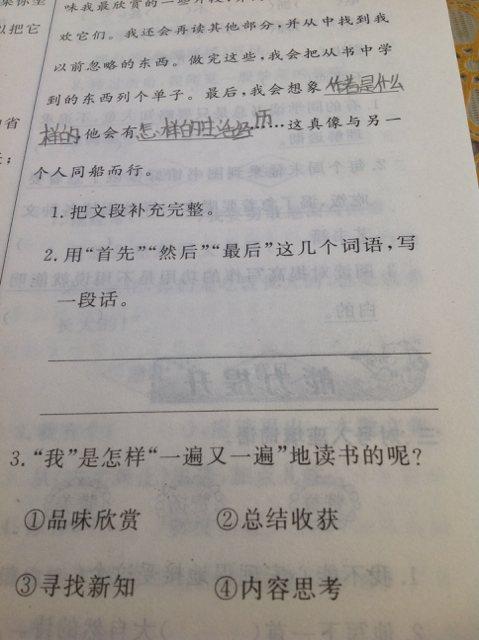 味我最欣赏的一些片段,
欢它们。我还会再读其他部分,并从中找到我
以前忽略的东西。做完这些,我会把从书中学
到的东西列个单子。最后,我会想象作者是什么
样的,他会有怎样的生活经历……这真像与另一
个人同船而行。
1.把文段补充完整。
2.用“首先”“然后”“最后”这几个词语,写
一段话。
3.“我”是怎样“一遍又一遍”地读书的呢?
①品味欣赏 ②总结收获
③寻找新知 ④内容思考
以把它